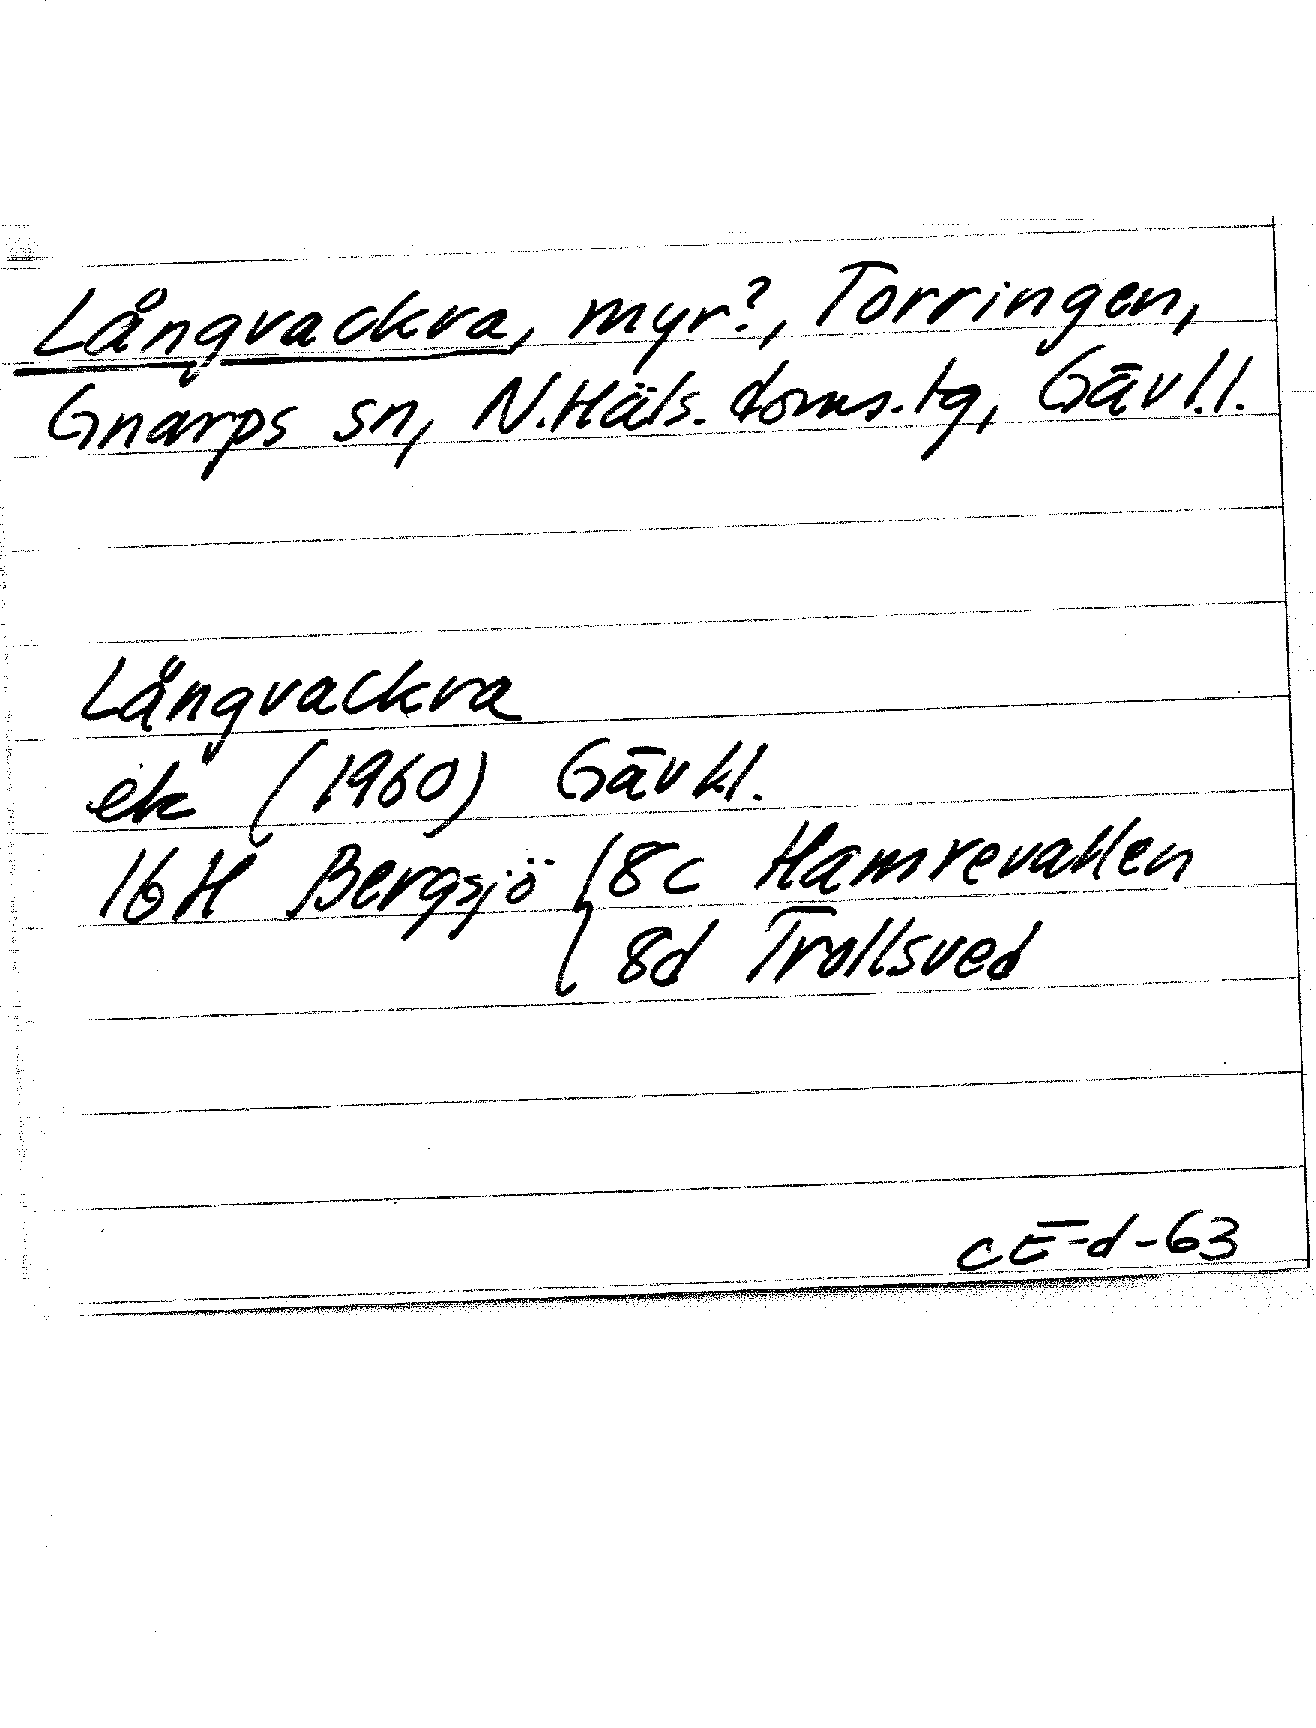 Långvackra, myr?, Torringen,
Gnarps sn, N.Häls. doms.tg, Gävl.l.
Långvackra
ek (1960) Gävkl.
16H Bergsjö { 8c Hamrevallen
8d Trollsved
CE-d-63